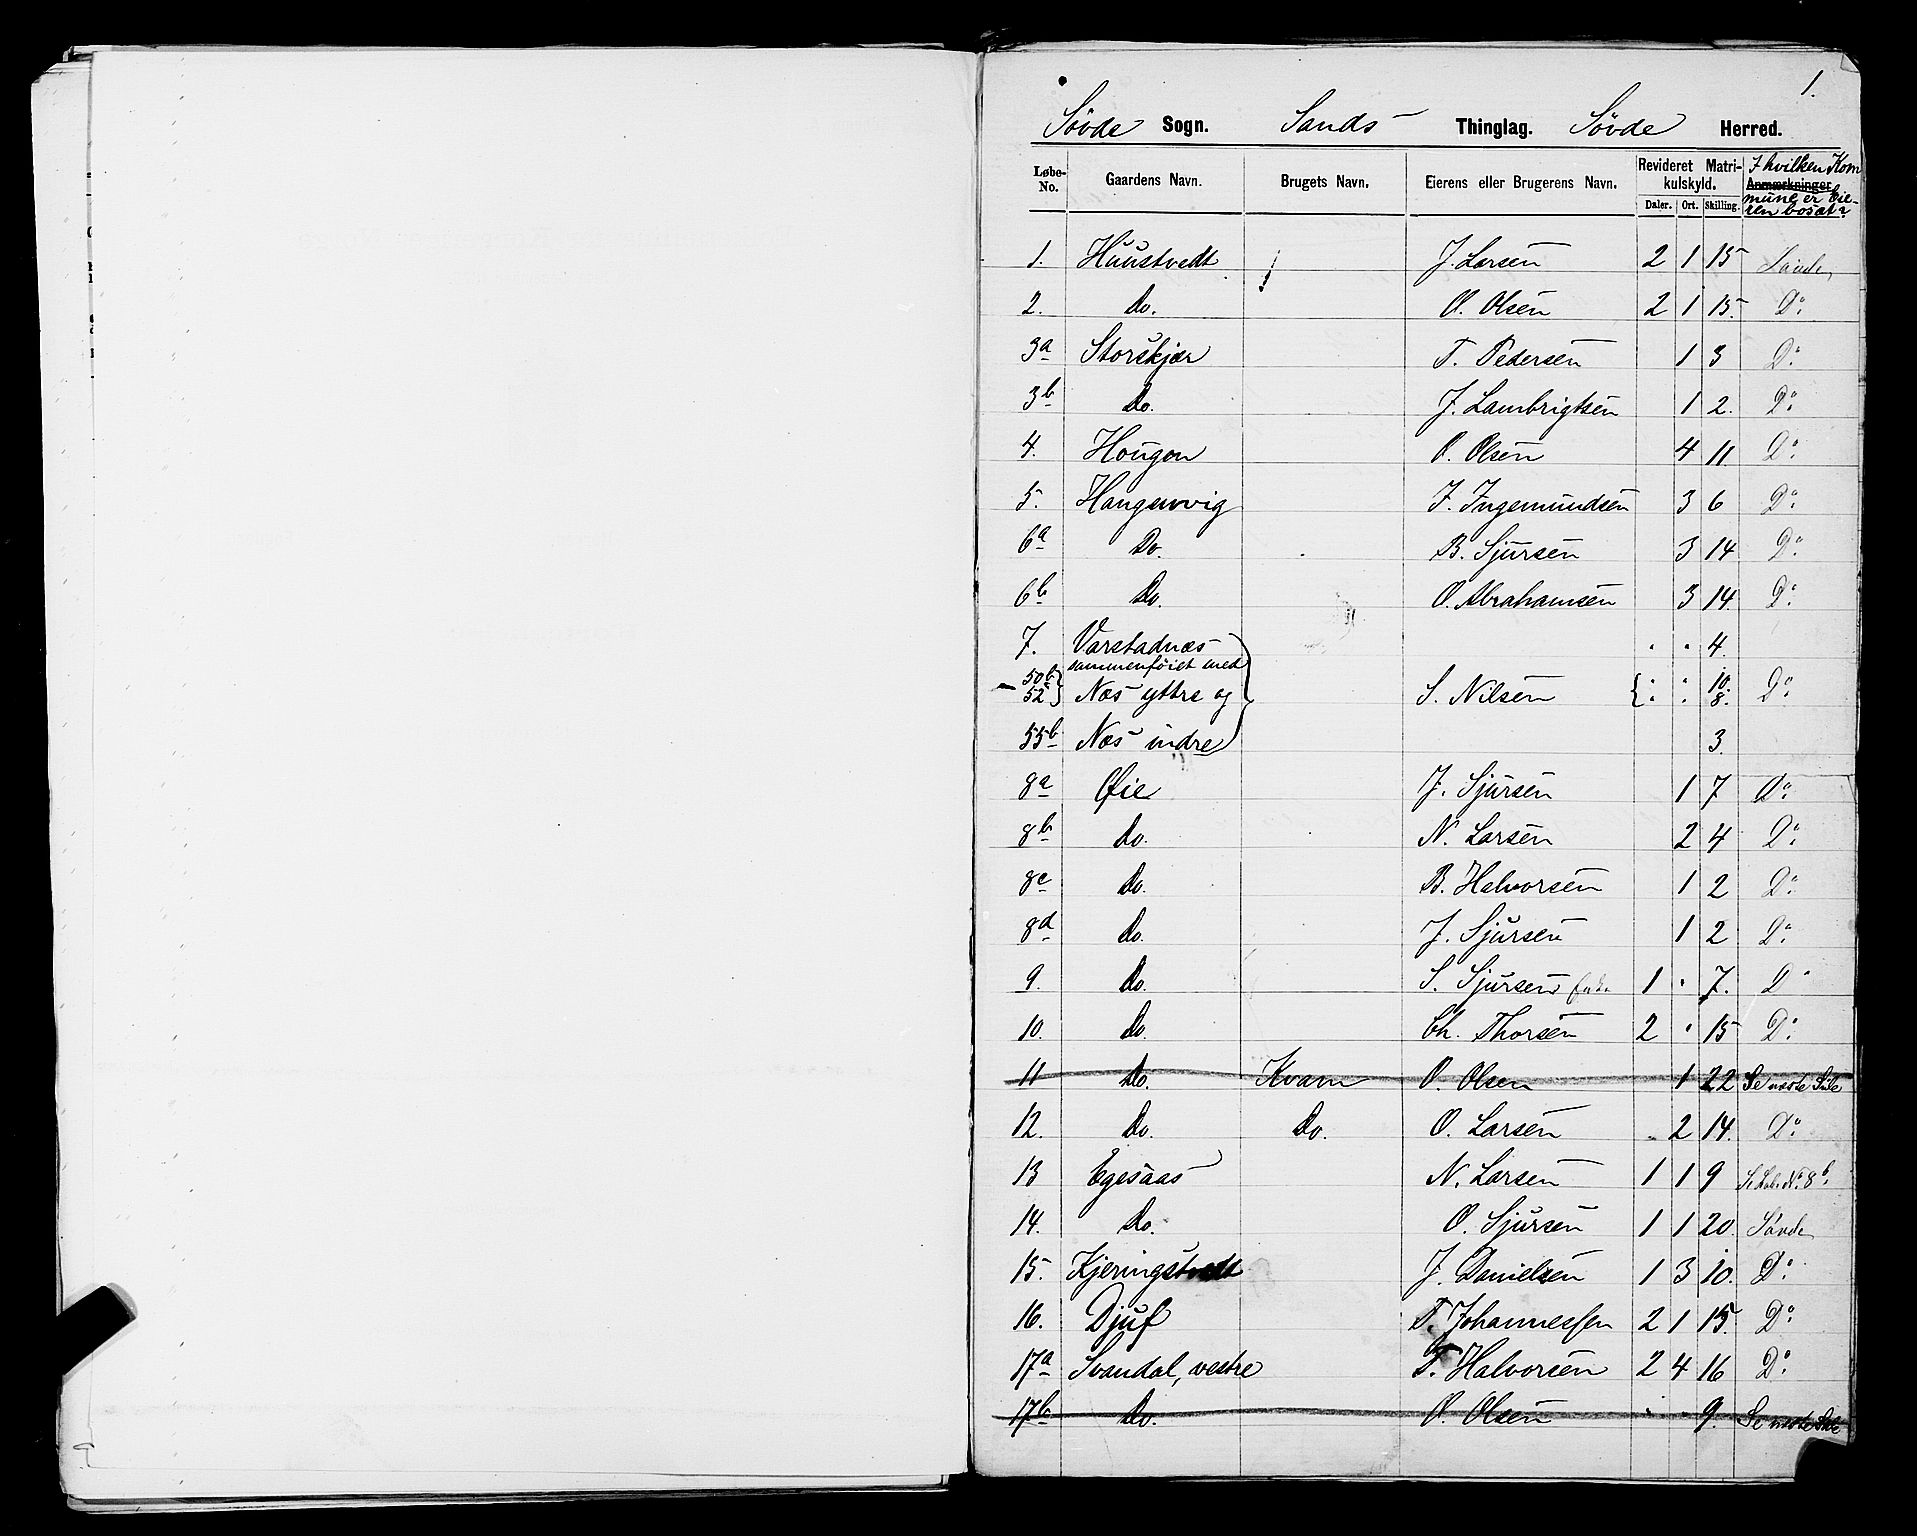 1.
Søvde Sogn. Sands Thinglag. Søvde Herred.
Løbe-No. Gaardens Navn. Brugets Navn. Eierens eller Brugerens Navn. Revideret Matrikulskyld. I hvilken Kom
Anmærkninger
mune er Eie-
ren bosat?
Daler. Ort. Skilling.
1. Huustvedt J. Larsen 2 1 15 Søvde
2. Do. O. Olsen 2 1 15. Do.
3a Storskjær T. Pedersen 1 3 Do.
3b Do. J. Lambrigtsen 1 2. Do.
4. Hougen O. Olsen 4 11. Do.
5. Hangenvig J. Ingemundsen 3 6 Do.
6a Do. B. Sjursen 3 14 Do.
6b Do. O. Abrahamsen 3 14. Do.
7. Varstadnæs " " 4.
sammenføiet med
50b Næs yttre og S. Nilsen " " 10. Do.
52 " " 8.
55b Næs indre 3.
8a Øie J. Sjursen 1 7 Do.
8b Do. N. Larsen 2 4 Do.
8c Do. B. Halvorsen 1 2 Do.
8d Do. J. Sjursen 1 2 Do.
9. Do. S. Sjursen 1 " 7. Do
10. Do. Ch. Thorsen 2 " 15 Do.
11 Do. Kvam O. Olsen 1 22 Se næste Side
12. Do. Do. O. Larsen 2 14. Do.
13 Egesaas N. Larsen 1 1 9 Se Løb. No. 8b.
14. Do. O. Sjursen 1 1 20. Søvde
15. Kjeringstvedt J. Danielsen 1 3 10. Do.
16. Djuf T. Johannessen 2 1 15. Do.
17a Svandal, vestre T. Halvorsen 2 4 16 Do.
17b Do. O. Olsen " " 9. Se næste Side